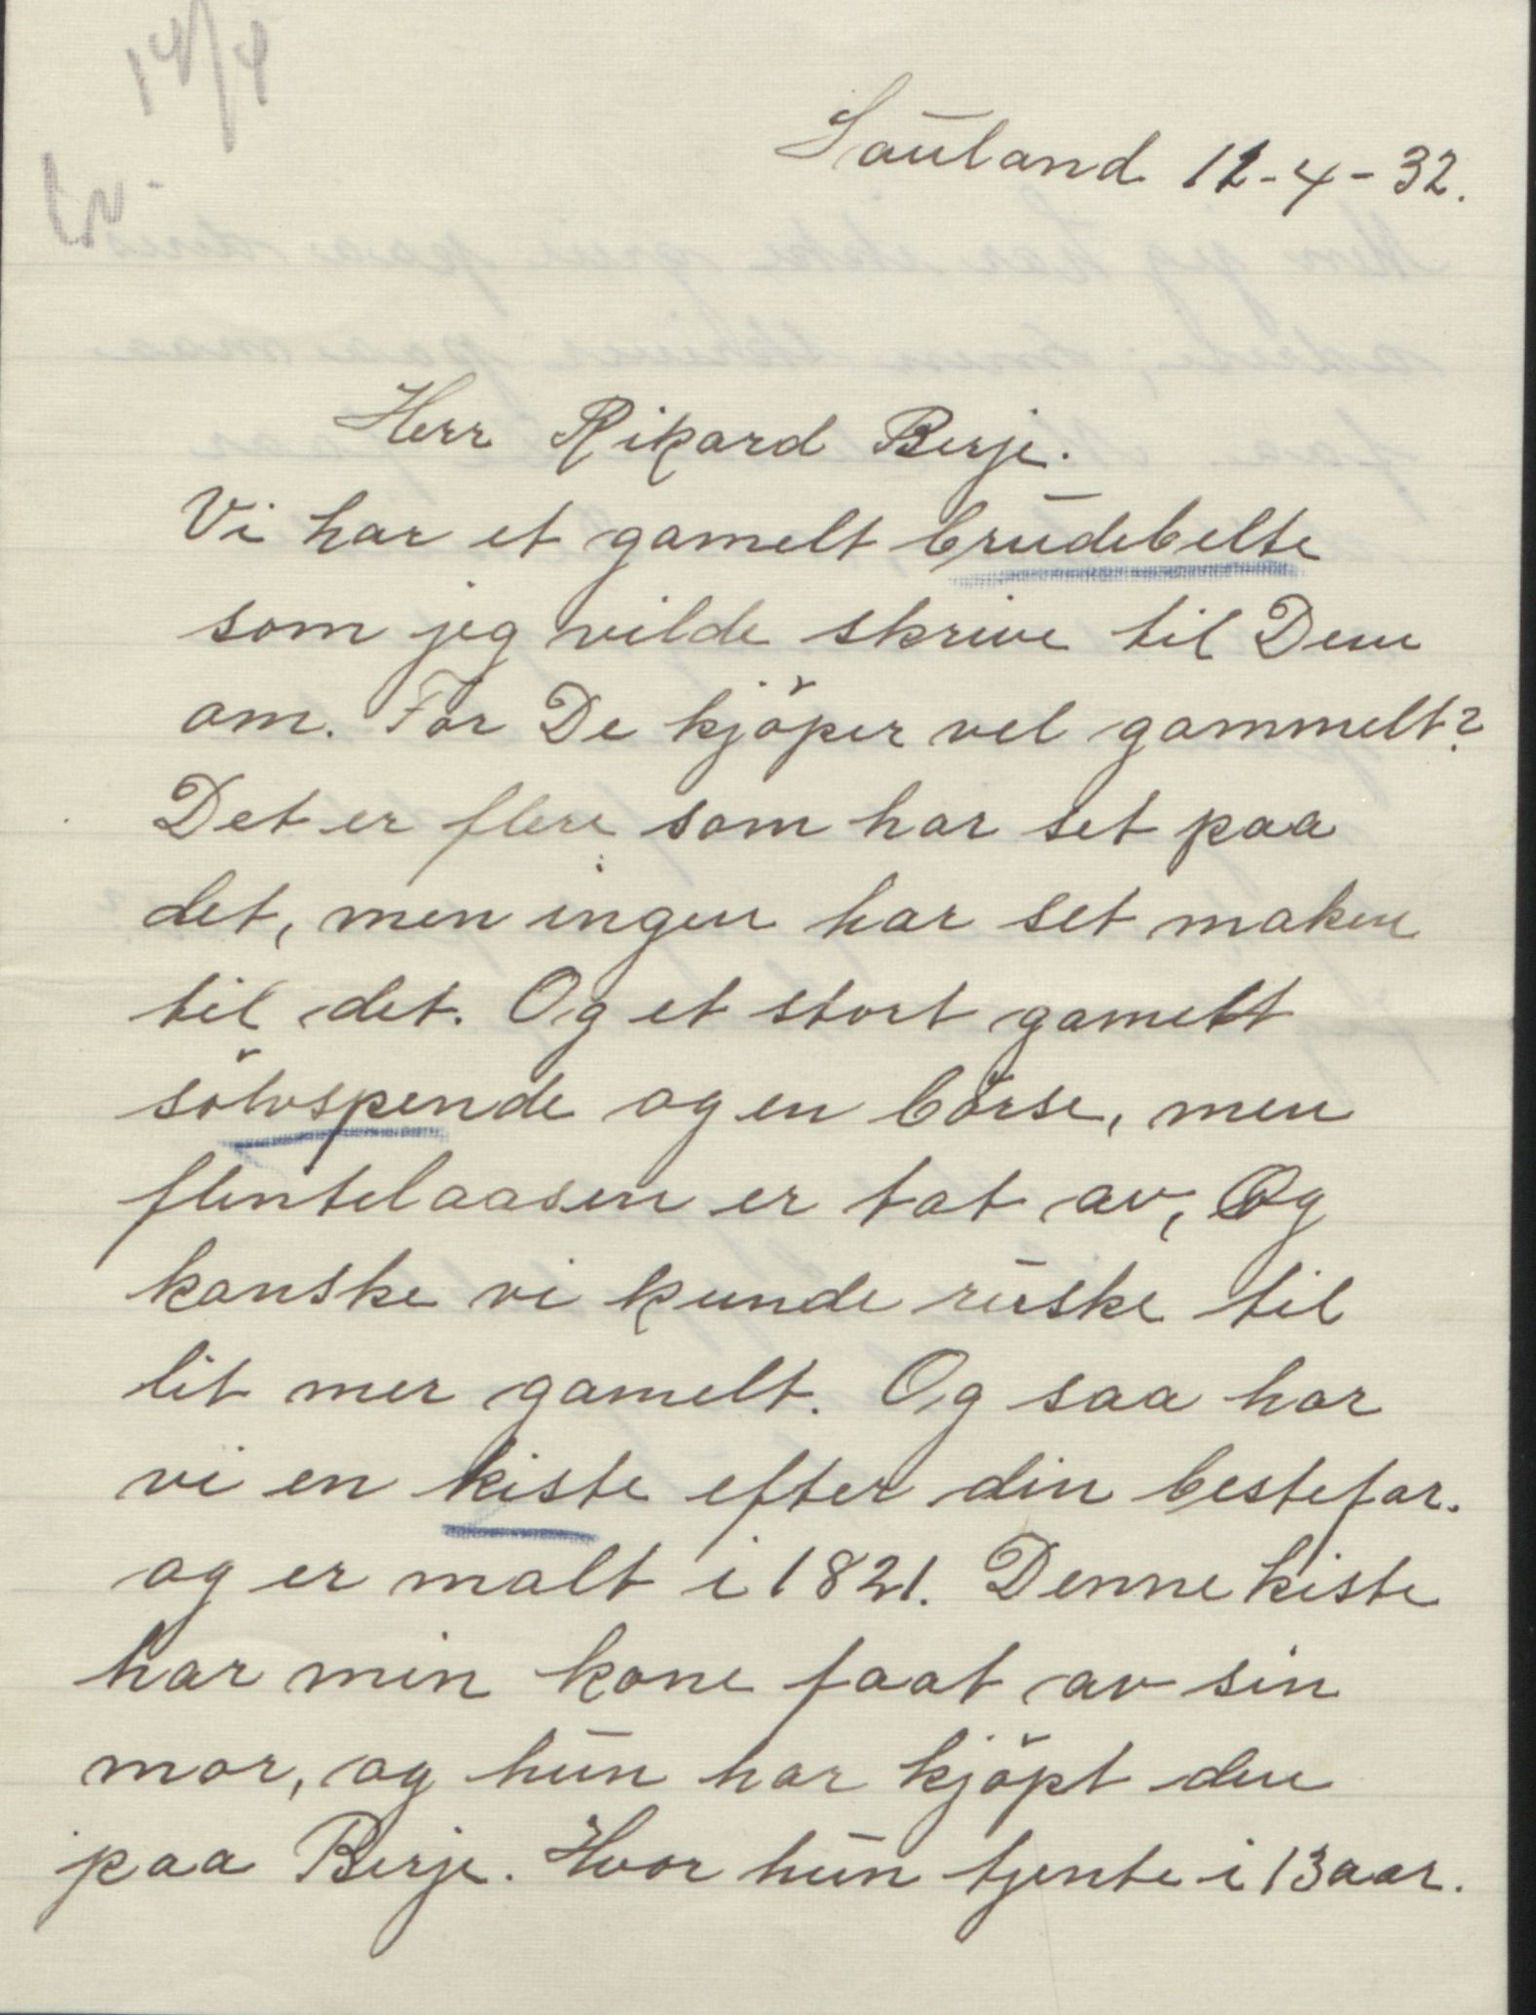 14/4
Sauland 12-4-32.
Herr Rikard Berje.
Vi har et gamelt brudebelte
som jeg vilde skrive til Dem
om. For De kjöper vel gammelt?
Det er flere som har set paa
det, men ingen har set maken
til det. Og et stort gamelt
sölvspende og en börse, men
flintelaasen er tat av, Og
kanske vi kunde ruske til
lit mer gamelt. Og saa har
vi en kiste efter din bestefar.
og er malt i 1821. Denne kiste
har min kone faat av sin
mor, og hun har kjöpt den
paa Berje. Hvor hun tjente i 13 aar.